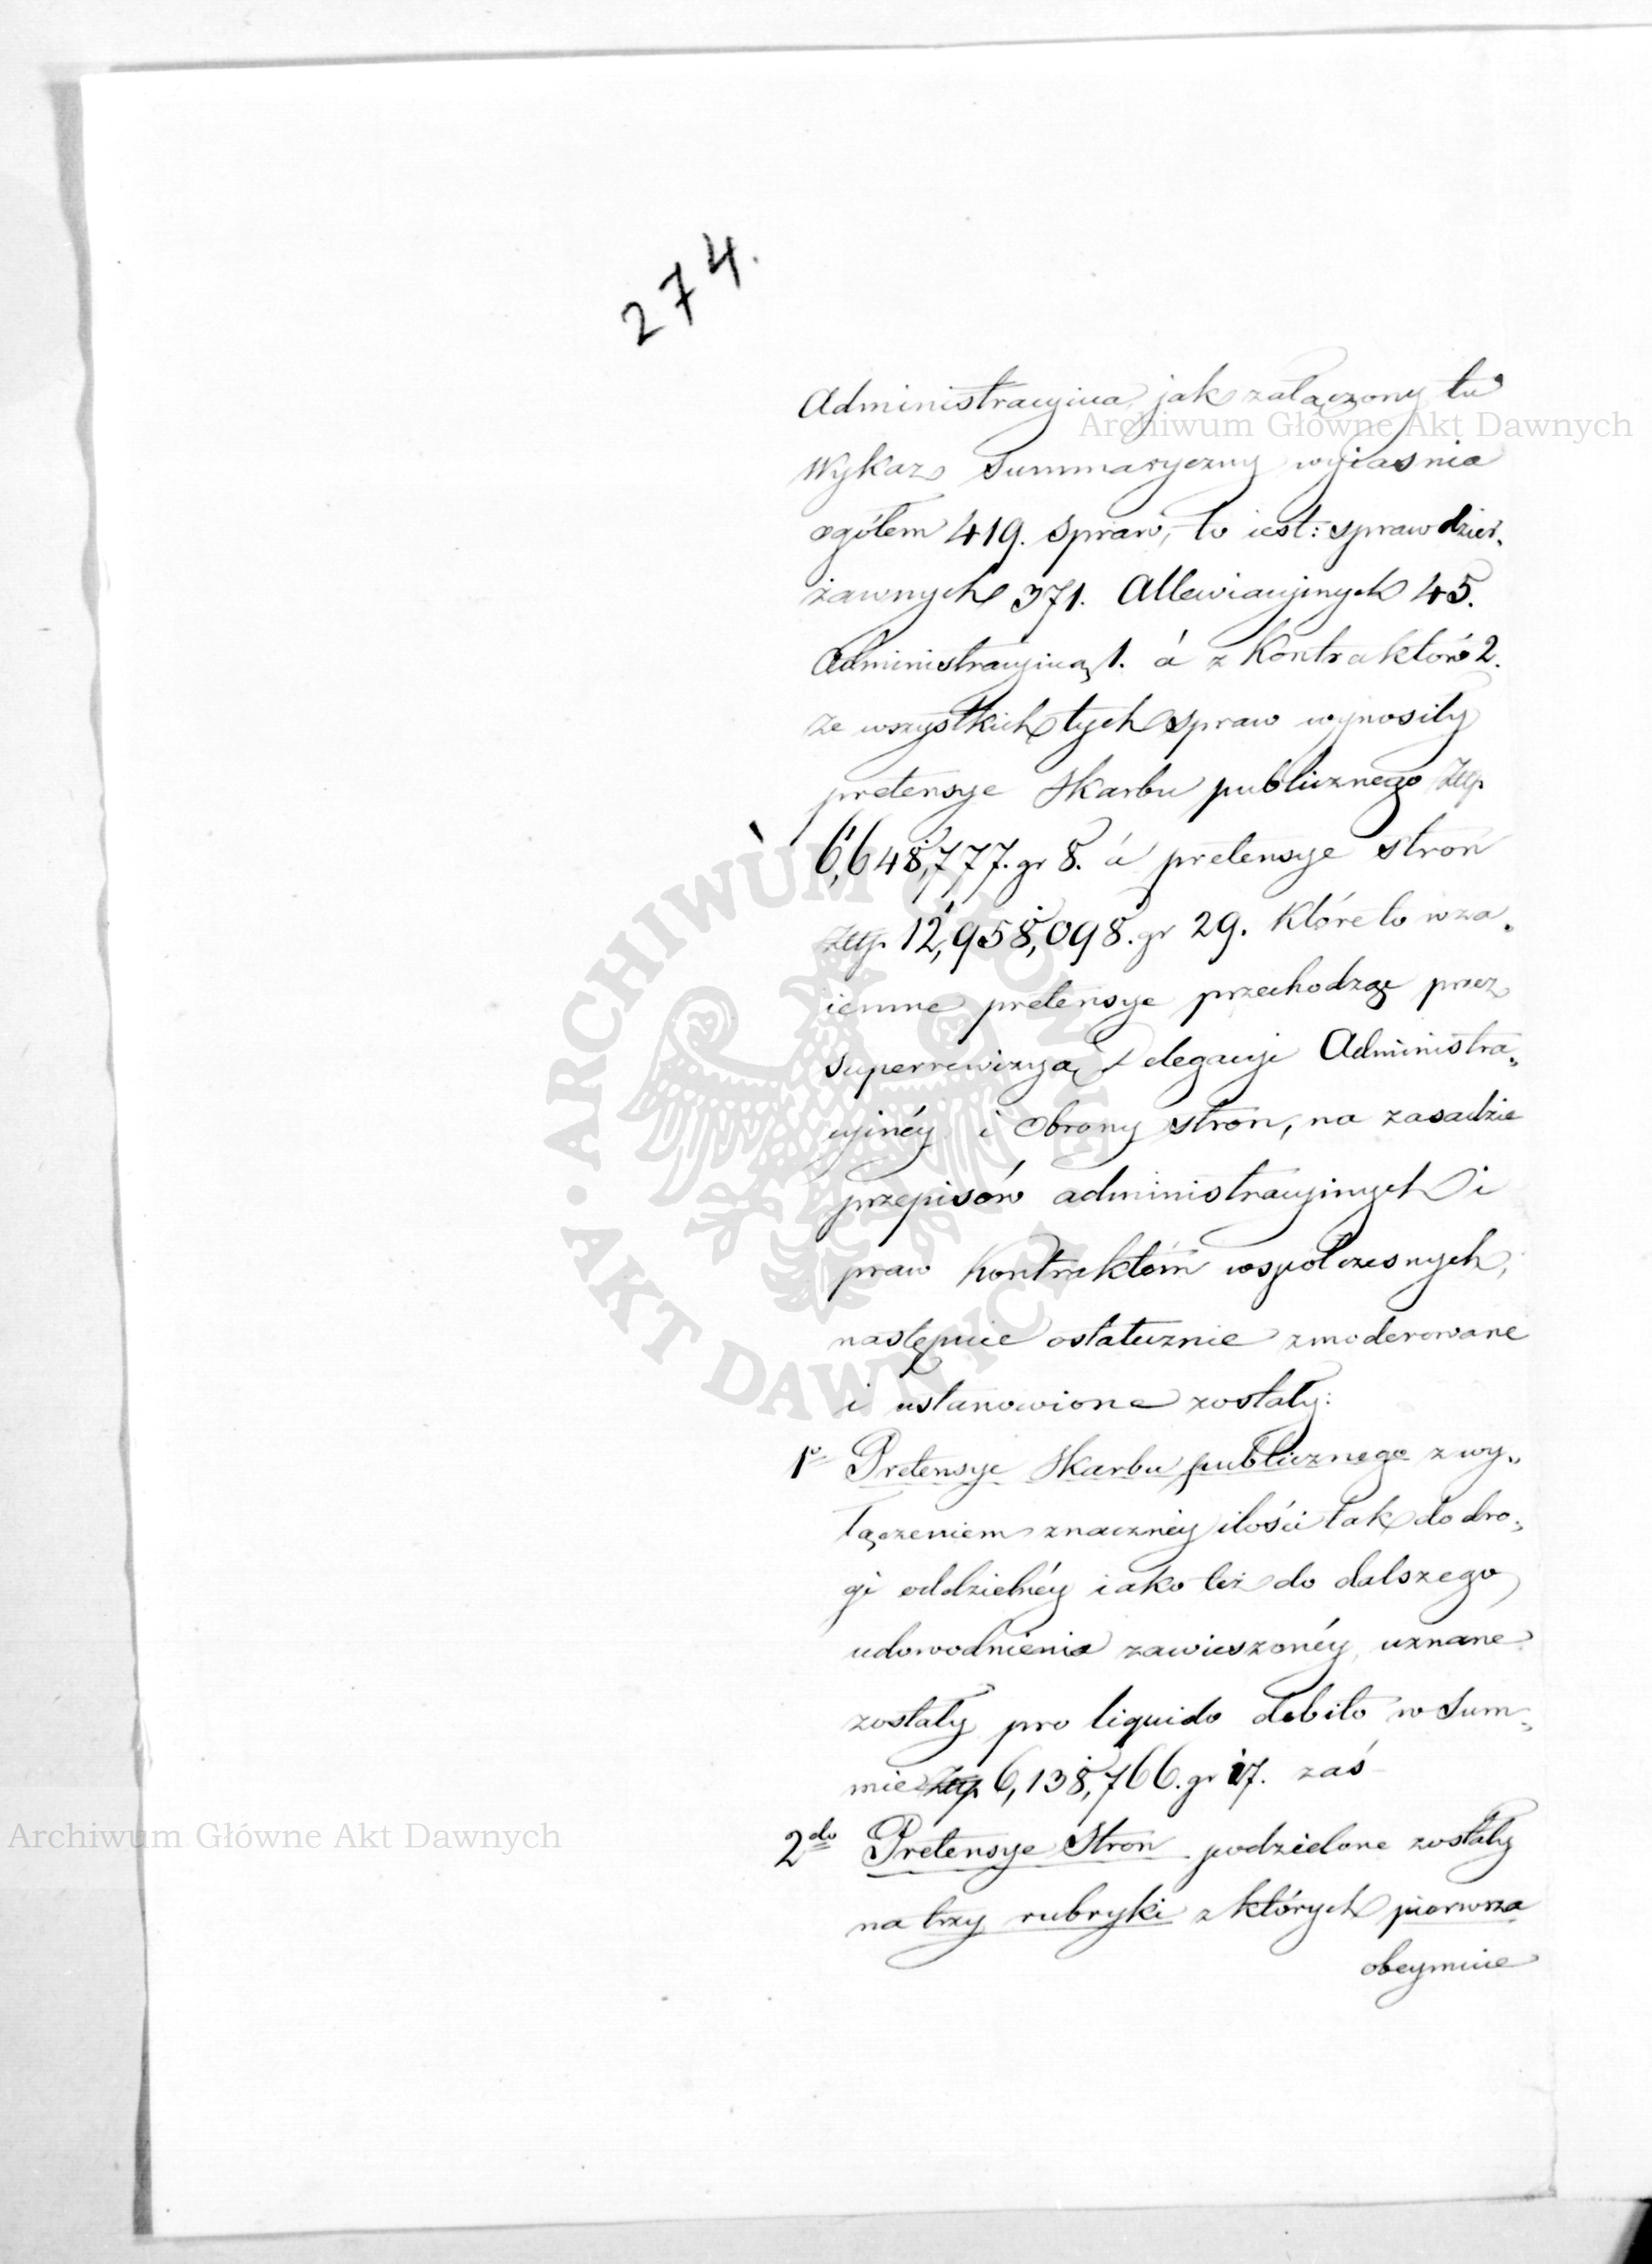 274.
Administracyina, jak załączony tu
Archiwum Główne Akt Dawnych
Wykaz Summaryczny wyiaśnia
ogółem 419. spraw, to iest: spraw dzier„
żawnych 371. Allewiacyinych 45.
Administracyiną 1. á z Kontraktów 2.
Ze wszystkich tych spraw wynosiły
pretensye Skarbu publicznego Złtp.
6,648,777. gr 8. á pretensye stron
Złtp. 12,958,098. gr 29. Które to wza„
iemne pretensye przechodząc przez
superrewizyą Delegacyi Administra„
cyinéy i Obrony stron, na zasadzie
przepisów administracyinych i
praw Kontraktom wspołczesnych,
następnie ostatecznie zmoderowane
i ustanowione zostały:
1º Pretensye Skarbu publicznego z wy„
łączeniem znacznéy ilości tak do dro„
gi oddzielnéy iako też do dalszego
udowodnienia zawieszonéy, uznane
zostały pro liquido debito w Sum„
mie Złtp 6,138,766. gr 17. zaś
Archiwum Główne Akt Dawnych
2do Pretensye Stron podzielone zostały
na trzy rubryki z których pierwsza
obeymuie
ARCHIWUM GŁÓWNE • AKT DAWNYCH